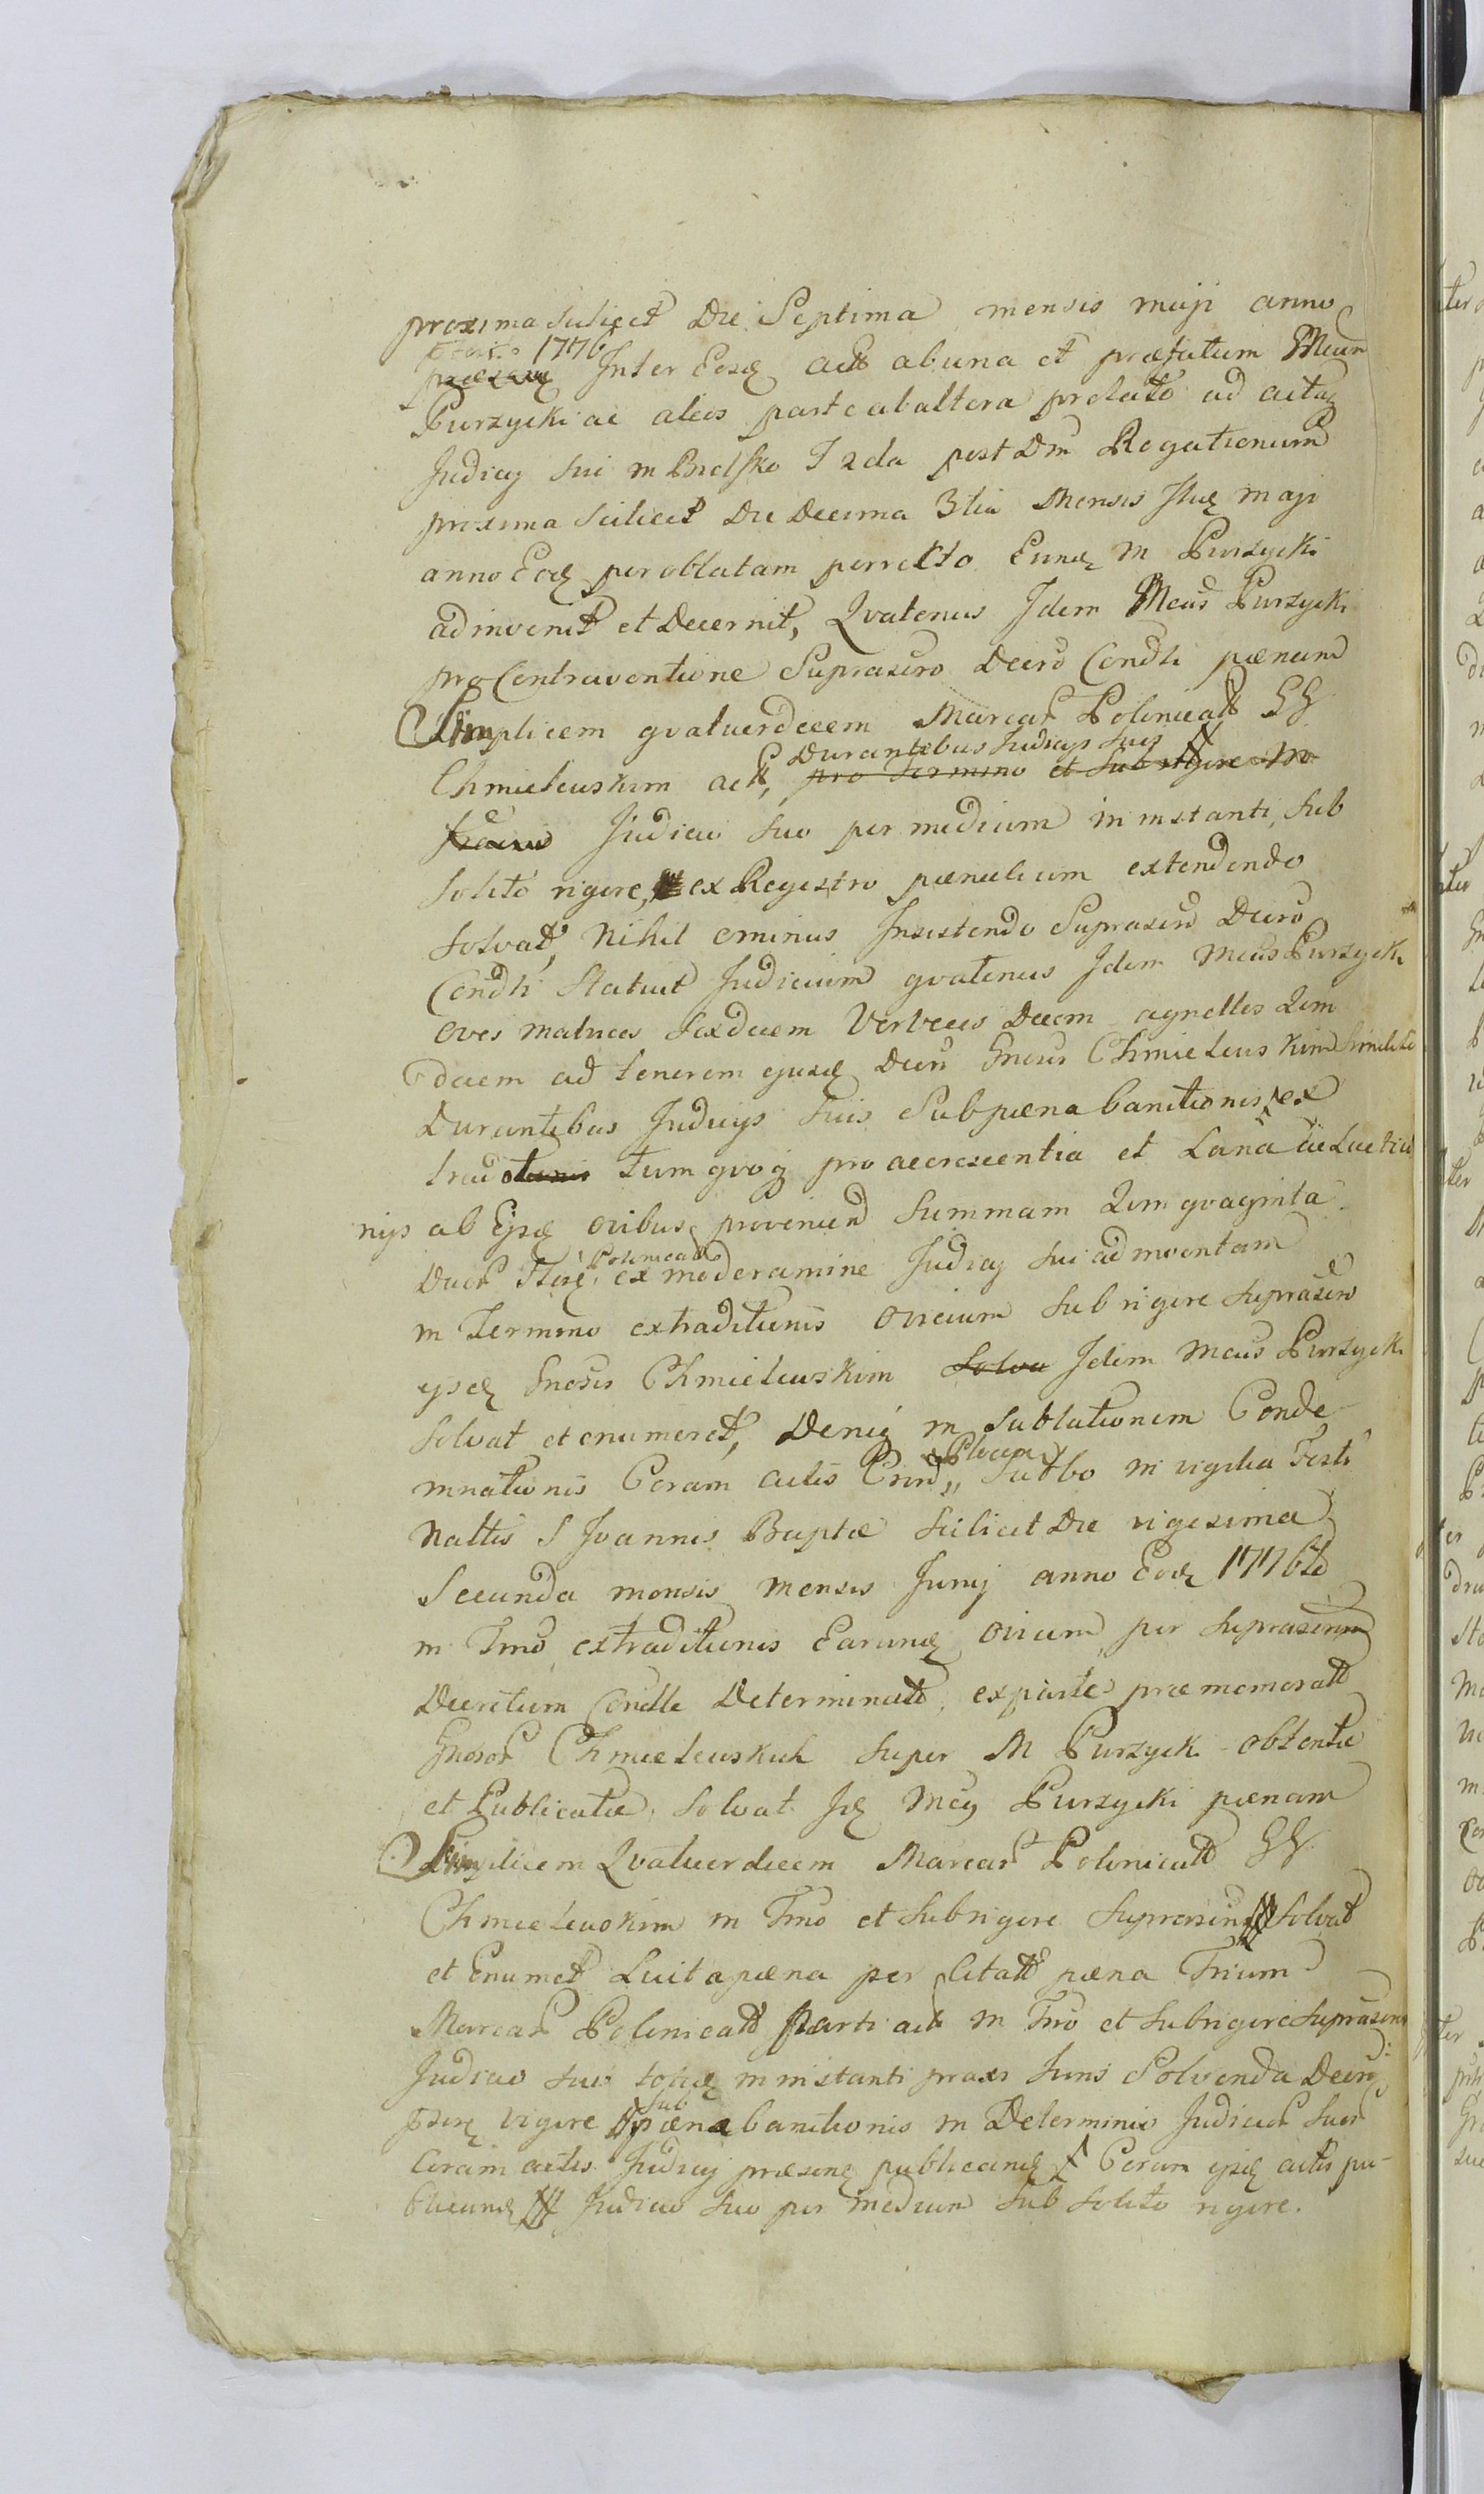 proxima scilicet Die Septima mensis maji anno
1776 Inter Eosq act ab una et præfatum Mcum
Purzycki ac aleos parte ab altera prolato ad acta
Judicij sui in Bielsko F 2da post Dm Rogationum
proxima scilicet Die Decima 3tia Mensis Ejusq maji
anno Eodq per oblatam porrecto Eunq M Purzycki
adinvenit et Decernit, Qvatenus Idem Mcus Purzycki
pro Contraventione Suprascro Decro Condli pænam
Simplicem qvatuordecem Marcar Polonicatt GG
Chmielewskim act, Durantibus Judicijs suis pro termino et sub rigore in
Judicio suo per medium in instanti, sub
solito rigore, ex Registro pænalium extendendo
solvat, Nihil ominus Insistendo Suprascro Decro
Condli Statuit Judicium qvatenus Idem Mcus Purzycki
oves matrices sexdecem Verveces Decem agnellos Qvin
decem ad tenorem ejusq Decri Gnosis Chmielewskim similit
Durantibus Judicijs suis Sub pæna banitionis ex
tradotionis tum qvoq pro accrescentia et Lana ac Lactici
nijs ab Ejsq ovibus provenien Summam Qvinqvaginta
Duor Flor Polonicatt ex moderamine Judicij sui adinventam
in Termino extraditionis ovium sub rigore suprascro
ejsq Gnosis Chmielewskim solva Idem Mcus Purzycki
solvat et enumeret, Deniq in sublationem Conde
mnationis Coram actis Plocen Sabbo in vigilia Festi
Naltis S Joannis Baptæ scilicet Die vigesima
Secunda mensis mensis Junij anno Eodq 1776to
in Tmo extraditionis Earunq ovium per suprascrum
Decretum Condle Determinato, ex parte præmemoratt
Gnosor Chmielewskich super M Purzycki obtentæ
et Publicatæ, solvat Idq Mcus Purzycki pænam
Simplicem Qvatuordecem Marcar Polonicatt GG
Chmielewskim in Tmo et sub rigore suprascro solvat
et Enumet Luita pæna per Citatt pæna Trium
Marcar Polonicatt Parti act in Tmo et sub rigore suprascro
Judicio suo totiq in instanti præs suns Solvenda Decri
psenq vigore sub pæna banitionis in Determinio Judicior suor
Coram actis Judicij præsenq publicanq Coram ejsq actis pu-
blicanq Judicio suo per medium sub solito rigore.